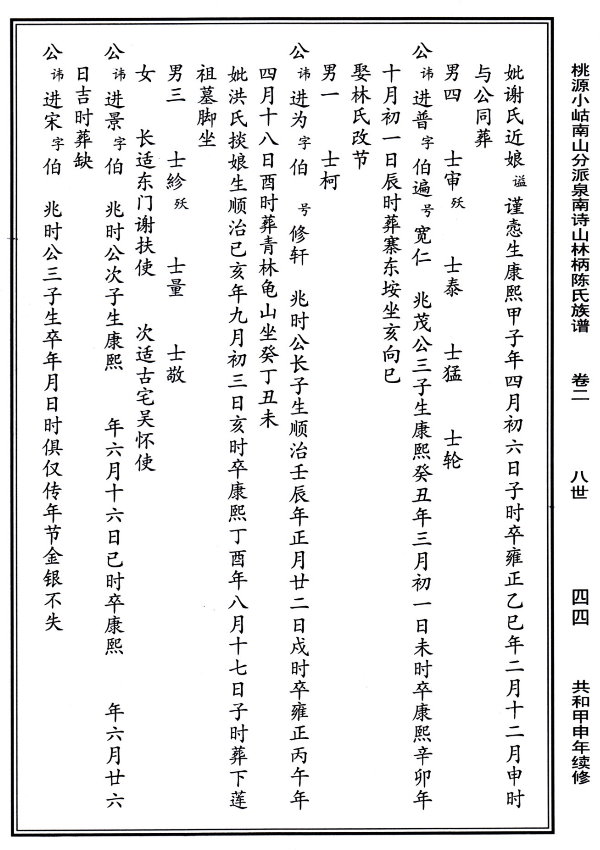 桃源小岵南山分派泉南诗山林柄陈氏族谱 卷二 八世 四四 共和甲申年续修
妣谢氏近娘谥谨悫生康熙甲子年四月初六日子时卒雍正乙巳年二月十二月申时
与公同葬
男四 士审殀 士泰 士猛 士轮
公讳进普字伯遍号宽仁 兆茂公三子生康熙癸丑年三月初一日未时卒康熙辛卯年
十月初一日辰时葬寨东垵坐亥向巳
娶林氏改节
男一 士柯
公讳进为字伯 号修轩 兆时公长子生顺治壬辰年正月廿二日戌时卒雍正丙午年
四月十八日酉时葬青林龟山坐癸丁丑未
妣洪氏掞娘生顺治己亥年九月初三日亥时卒康熙丁酉年八月十七日子时葬下莲
祖墓脚坐
男三 士紾殀 士量 士敬
女 长适东门谢扶使 次适古宅吴怀使
公讳进景字伯 兆时公次子生康熙 年六月十六日巳时卒康熙 年六月廿六
日吉时葬缺
公讳进宋字伯 兆时公三子生卒年月日时俱仅传年节金银不失